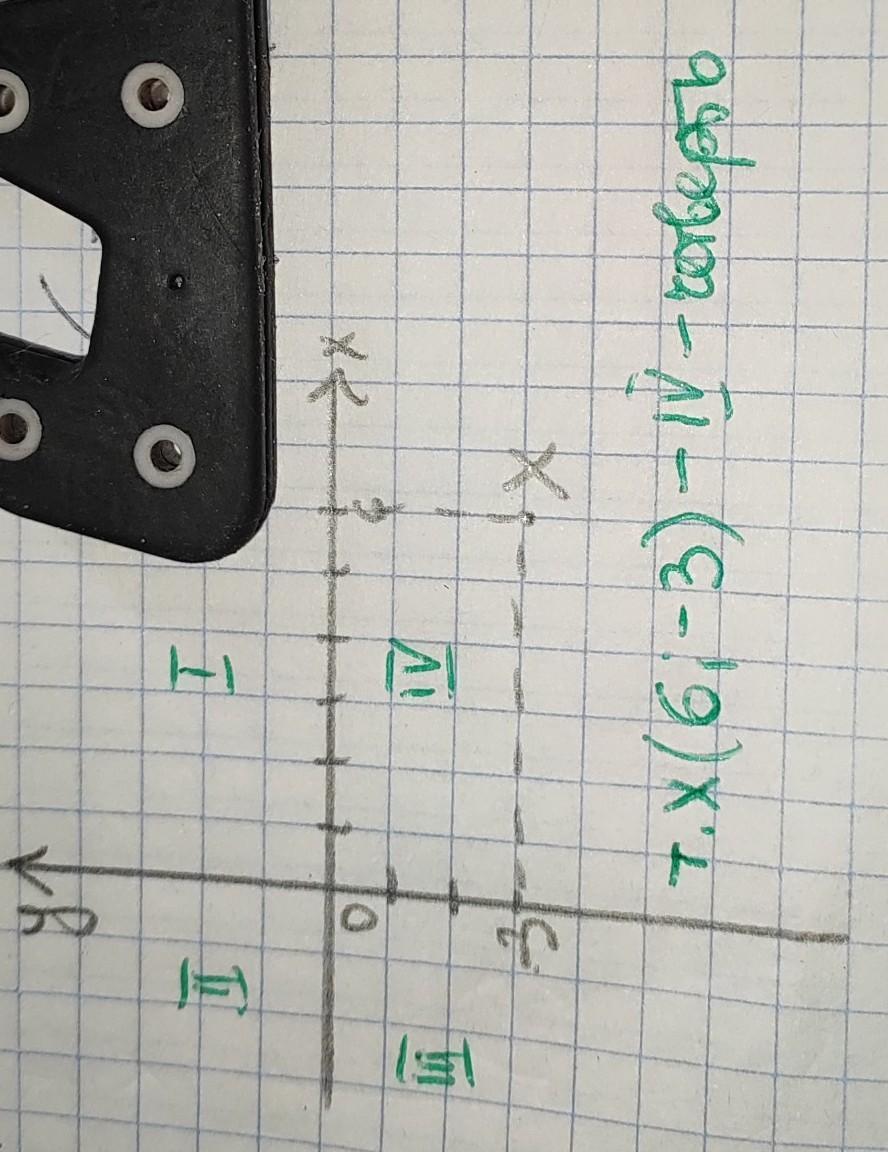 y
I
II
0
x
6
IV
III
-3
X
т. X(6; -3) - IV - човерть